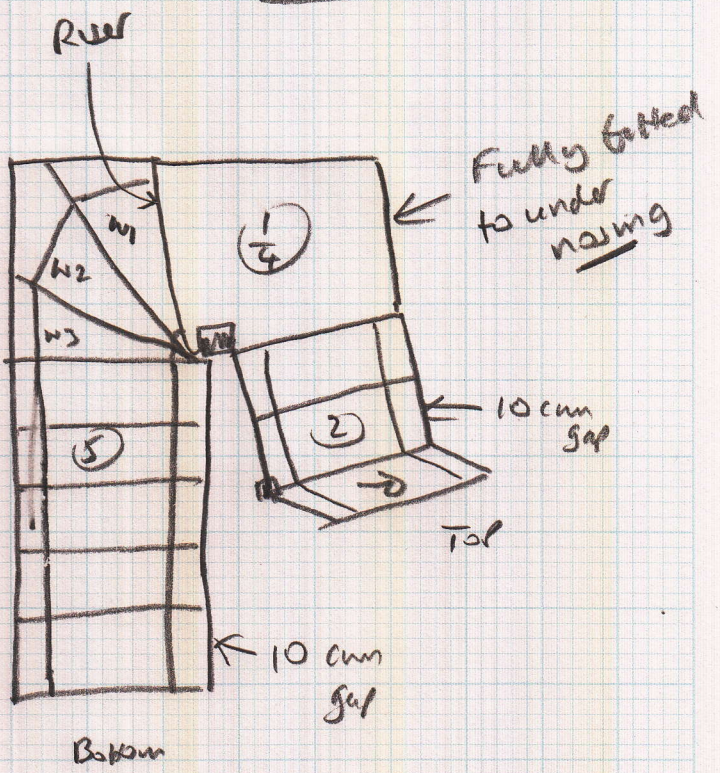 Riser
Fully fitted
to under
nosing
W1
1/4
W2
W3
10 cm
gap
2
5
Top
10 cm
gap
Bottom